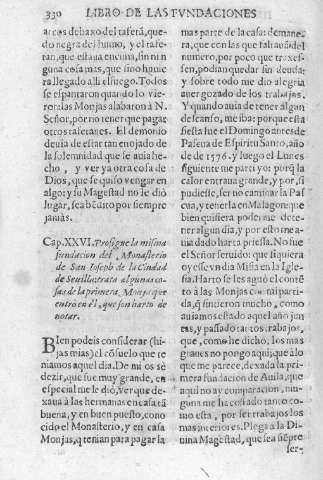 330 LIBRO DE LAS FVNDACIONES
arcos debaxo del tafetá, que-
do negra del humo, y el tafe-
tan, que estaua encima, sin nin
guna cosa mas, que sino huuie
ra llegado alli el fuego. Todos
se espantaron quando lo vie-
ron: las Monjas alabaron à N.
Señor, por no tener que pagar
otros tafetanes. El demonio
deuia de estar tan enojado de
la solemnidad que se auia he-
cho, y ver ya otra cosa de
Dios, que se quiso vengar en
algo: y su Magestad no le dió
lugar, sea bẽdito por siempre
jamàs.
Cap. XXVI. Prosigue la misma
fundacion del Monasterio
de San Joseph de la Ciudad
de Seuilla: trata algunas co-
sas de la primera Monja que
entrò en èl, que son harto de
notar.
BIen podeis considerar (hi-
jas mias) el cõsuelo que te
niamos aquel dia. De mi os sè
dezir, que fue muy grande, en
especial me le diò, ver que de-
xaua à las hermanas en casa tã
buena, y en buen puesto, cono
cido el Monasterio, y en casa
Monjas, q̃ tenian para pagar la
mas parte de la casa: de mane-
ra, que con las que faltauã del
numero, por poco que truxes-
sen, podian quedar sin deuda:
y sobre todo me dio alegria
auer gozado de los trabajos.
Y quando auia de tener algun
descanso, me iba: porque esta
fiesta fue el Domingo antes de
Pascua de Espiritu Santo, año
de 1576. y luego el Lunes
siguiente me parti yo: porq̃ la
calor entraua grande, y por, si
pudiesse, ser no caminar la Pas
cua, y tenerla en Malagon: que
bien quisiera poder me dete-
ner algun dia, y por esto me a-
uia dado harta priessa. No fue
el Señor seruido: que si quiera
oyesse vn dia Missa en la Igle-
sia. Harto se les aguó el conte
to à las Monjas cõ mi parti-
da, q̃ sintieron mucho, como
auiamos estado aquel año jun
tas, y passado tantos trabajos,
que, como he dicho, los mas
graues no pongo aqui; que à lo
que me parece, dexada la pri
mera fundacion de Auila, que
aqui no ay comparacion, nin-
guna me ha costado tanto co-
mo esta, por ser trabajos los
mas interiores. Plega à la Di-
uina Magestad, que sea siẽpre
ser-